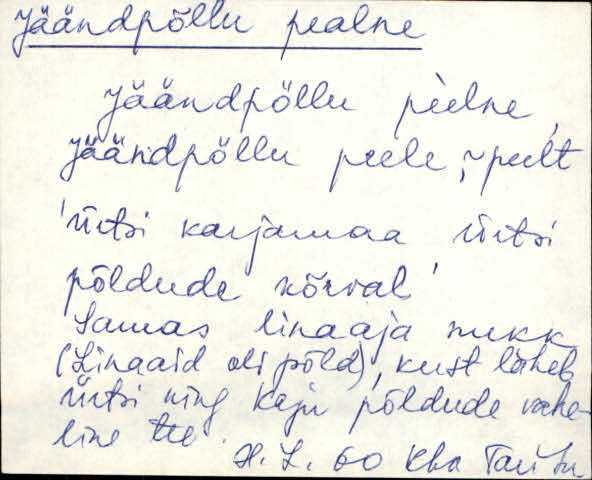 Jäändpõllu pealne
Jäändpõllu pèèlne,
Jäändpõllu peele, ~peelt
'Üitsi karjamaa Üitsi
põldude kõrval'
Samas linaaja nukk
(Linaaid oli põld), kust läheb
Üitsi ning Kaju põldude vahe-
line tee.
H. L. 60 Kba